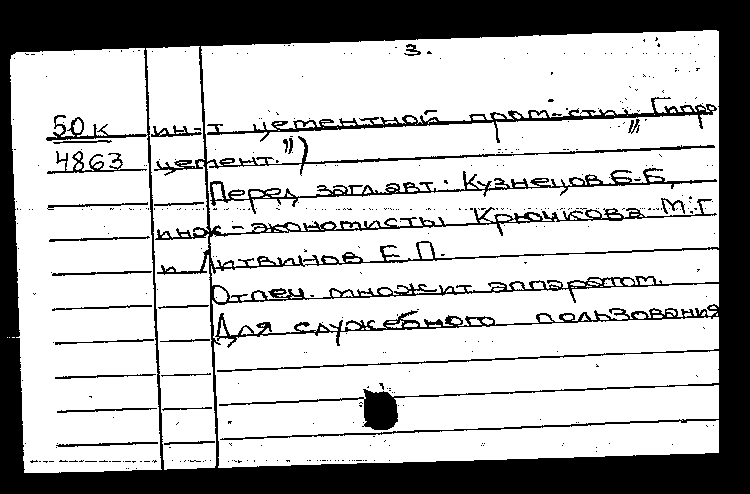 3.
50к ин-т цементной пром-сты „Гипро
4863 цемент.")
Перед загл. авт.: Кузнецов Б.Б.,
инж-экономисты Крючкова М.Г
и Литвинов Е.П.
Отпеч. множит аппаратом.
Для служебного пользования